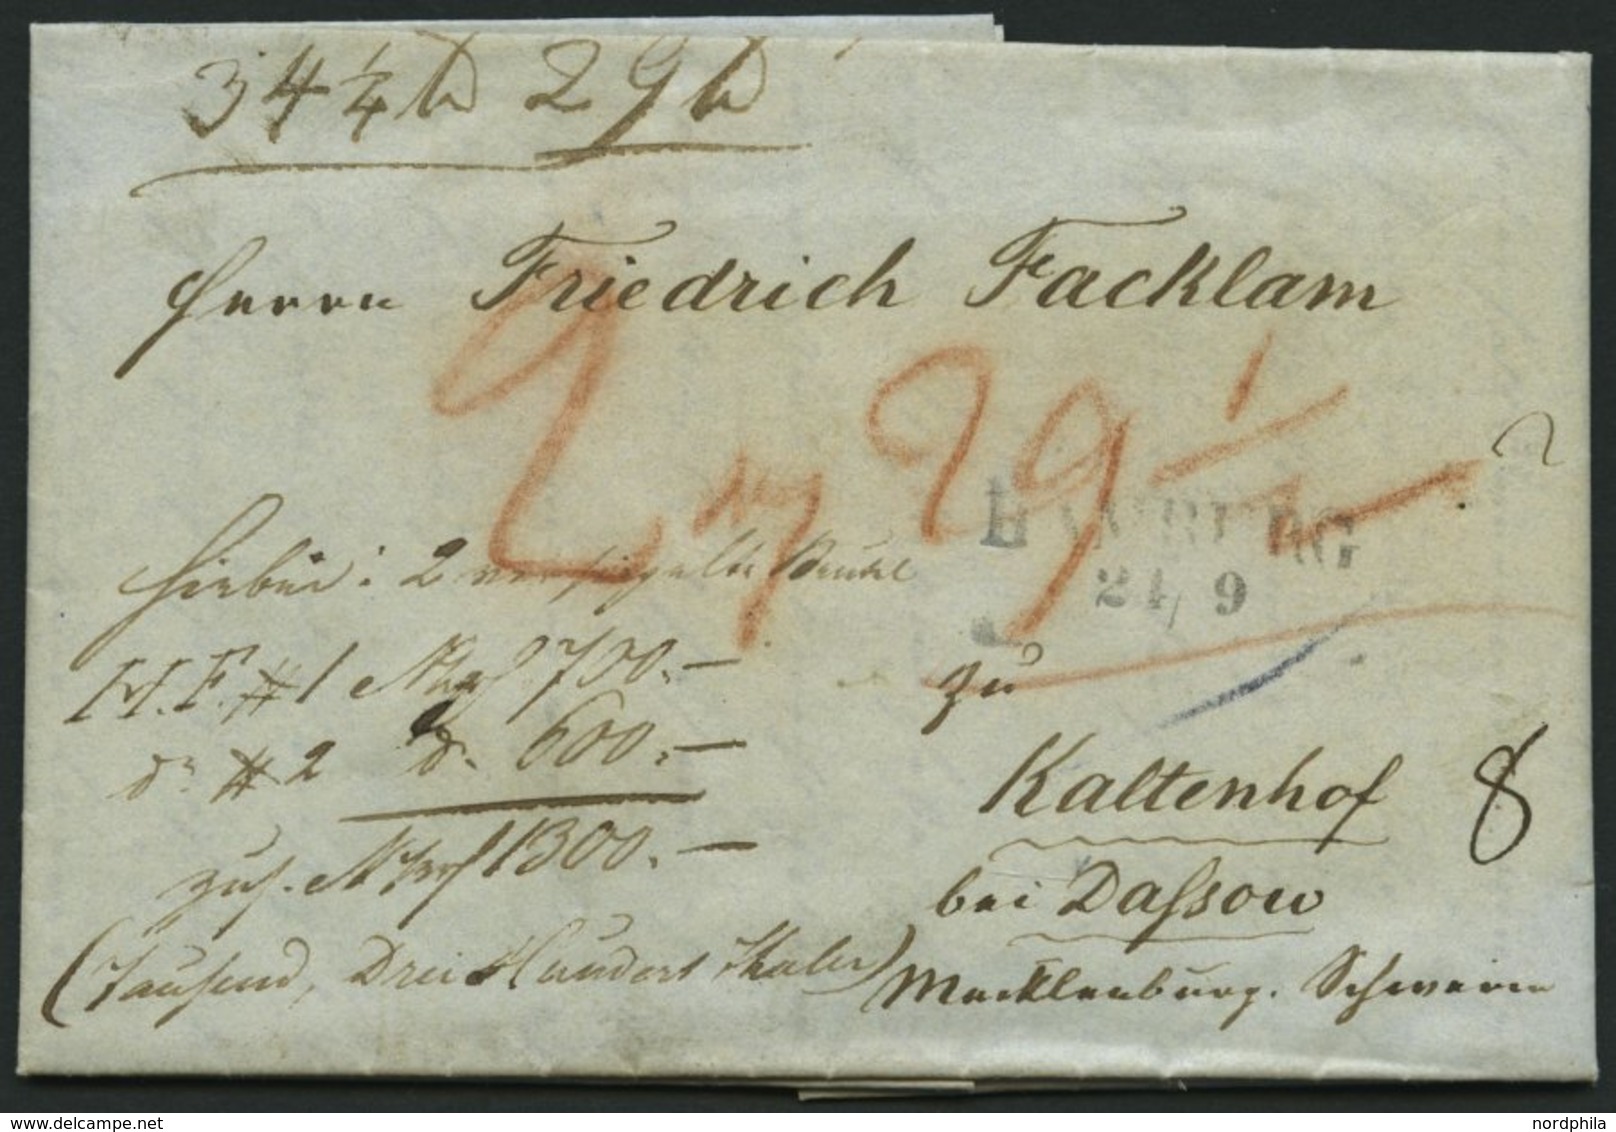 34 1/4 ℔ 29 ℔
Herrn Friedrich Facklam
2 29 1/2
HAMBURG
24/9
Hiebei: 2 versiegelte Beutel
# 1 700.—
do # 2 do 600.—
zus. 1300.—
(Tausend, Drei Hundert Thaler)
zu
Kaltenhof
8
bei Dassow
Mecklenburg. Schwerin
nordphila